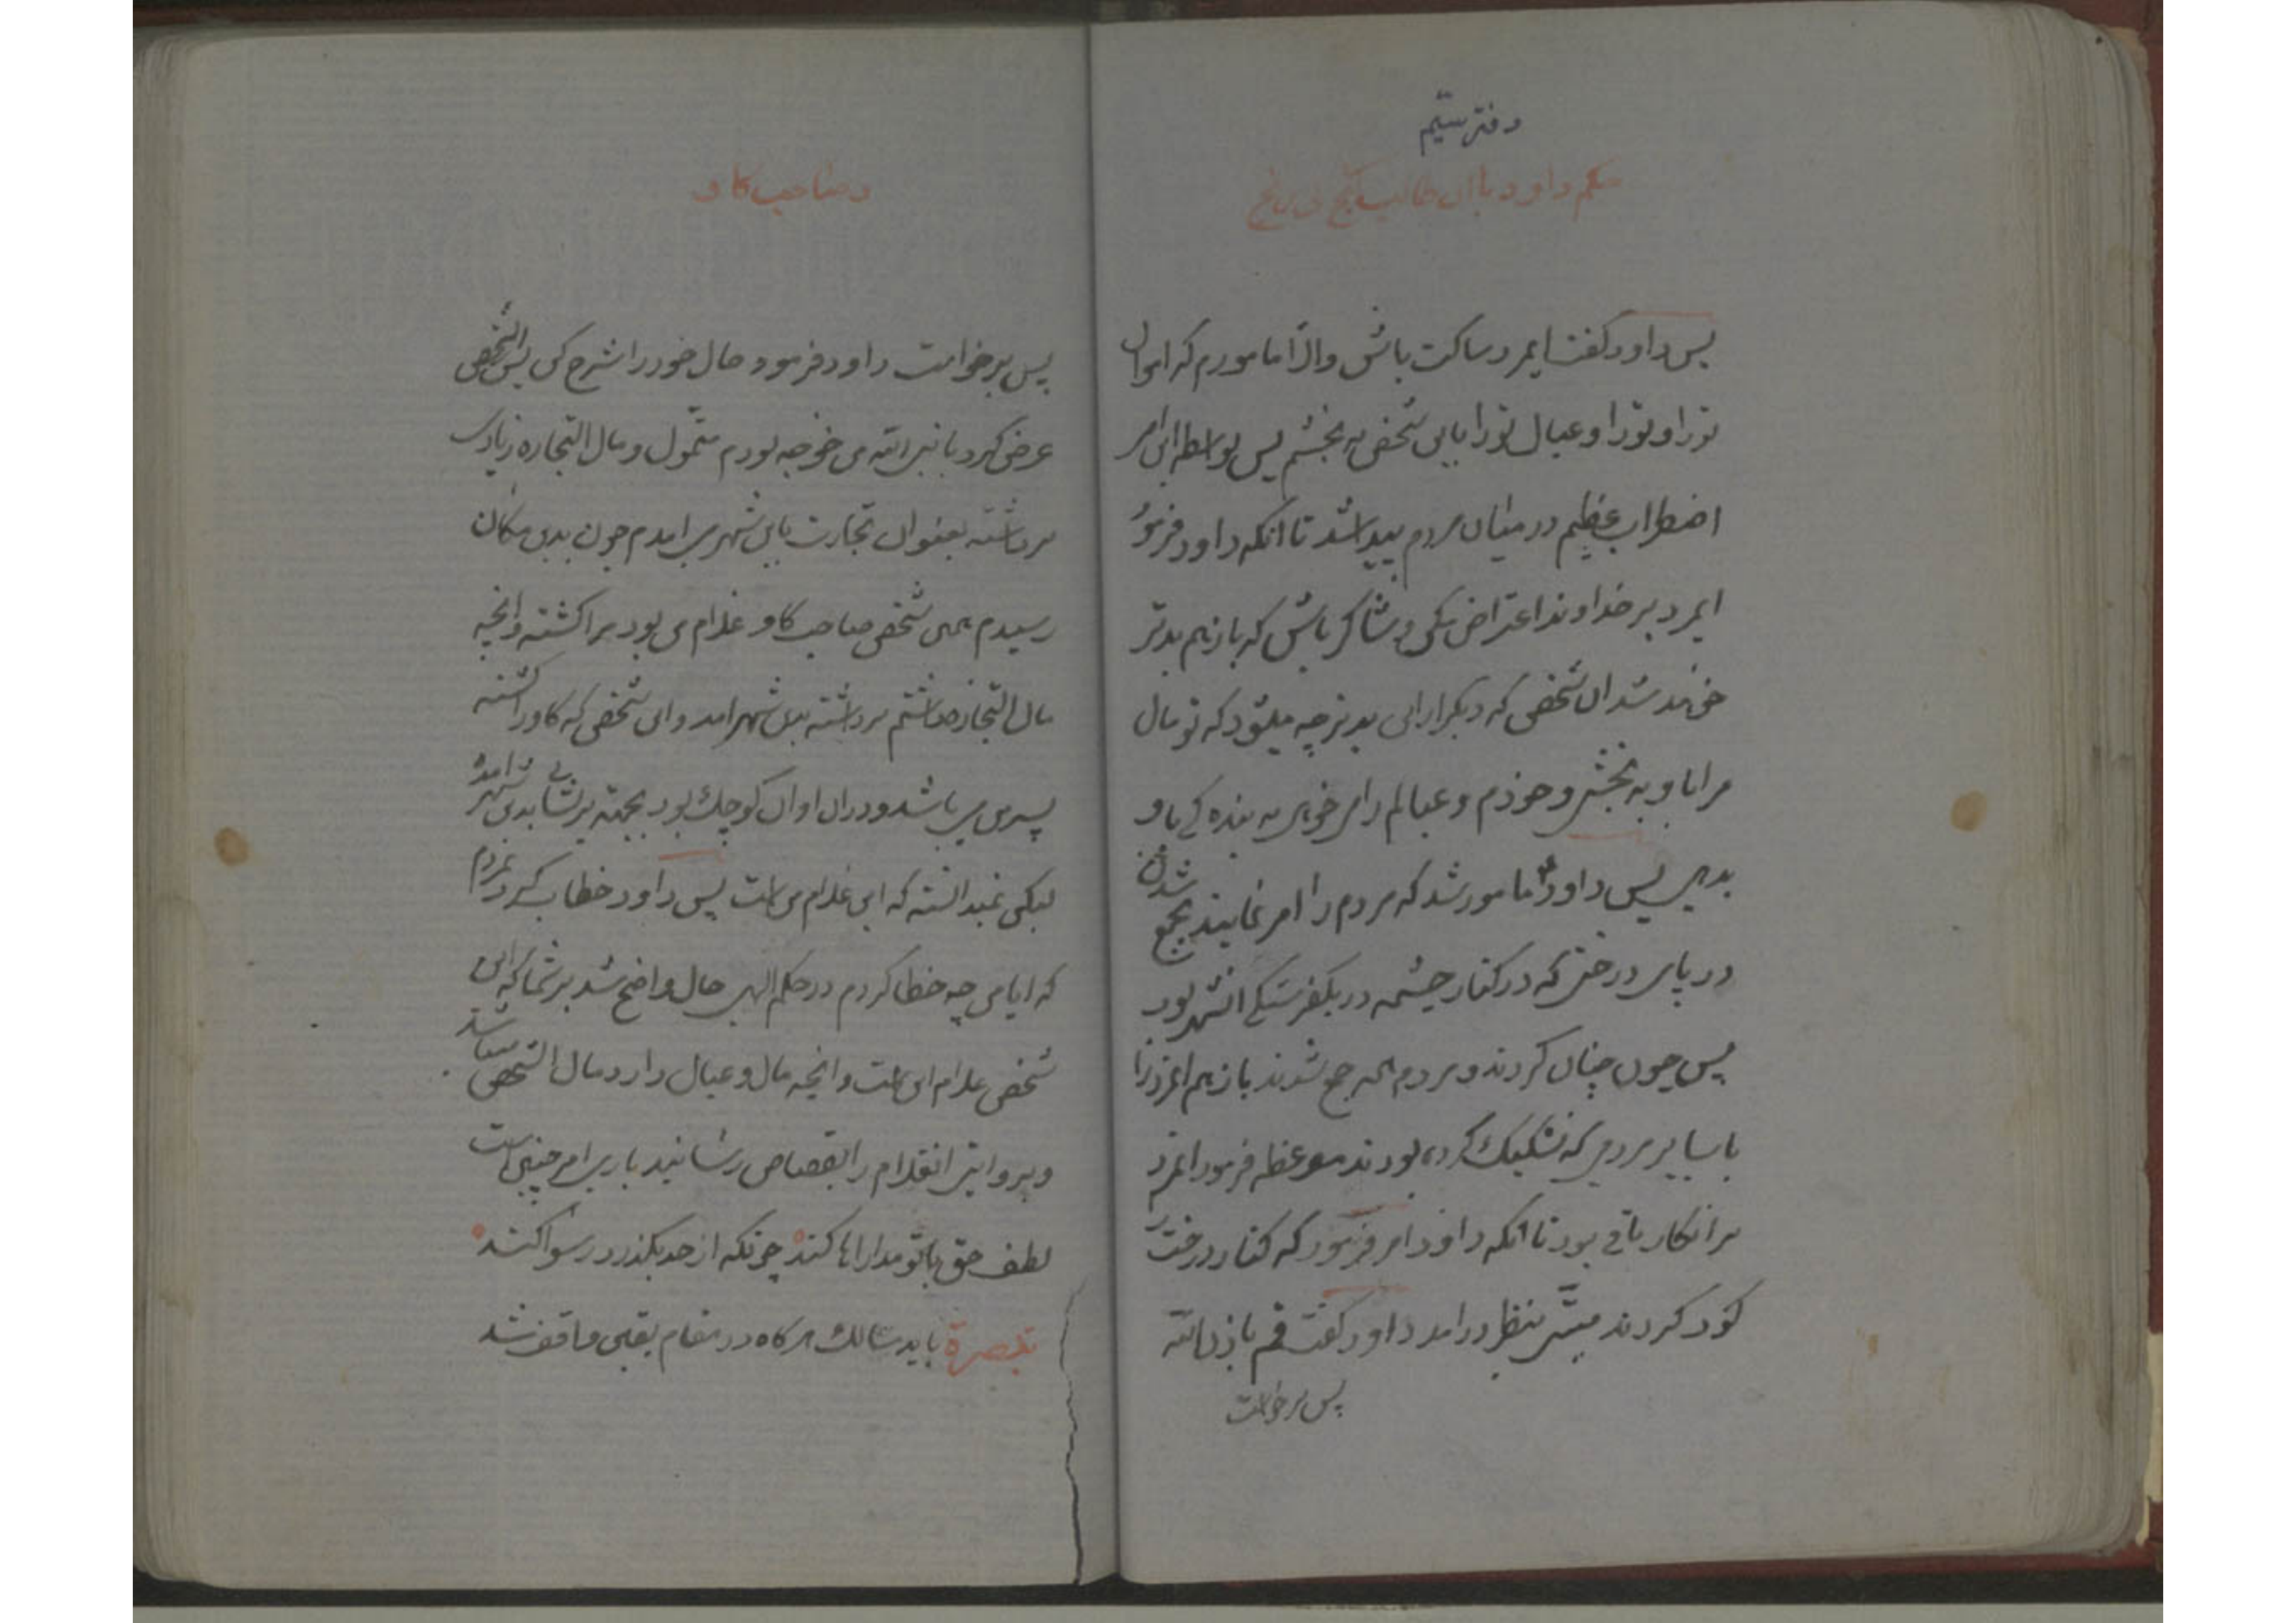 دفتر سیّم
حکم داود با ان طالب کنج بی رنج
پس داود کفت ایمرد ساکت باش والا مامورم که اموال
تورا و تورا و عیال تورا باین شخص به بخشم پس بواسطه این امر
اضطراب عظیم در میان مردم پیدا شد تا انکه داود فرمود
ایمرد بر خداوند اعتراض مکن و شاکر باش که باز هم بدتر
شد ان شخص که دیکر از این بدتر چه میشود که تو مال
مرا باو به بخشی و خودم و عیالم را به بنده کی باو
بدهی پس داود مامور شد که مردم را امر نمایند بجمع شدن
در پای درختی که در کنار چشمه در یکفرسنکی انشهر بود
پس چون چنان کردند و مردم همه جمع شدند باز هم انمرد را
با سایر مردمی که تشکیک کرده بودند موعظه فرمود انمرد
بر انکار باقی بود تا انکه داود امر فرمود که کنار درخت را
کود کردند میتی بنظر در امد داود کفت قم باذن الله
پس برخواست
و صاحب کاو
پس برخواست داود فرمود حال خود را شرح کن پس انشخص
عرض کرد یا نبی الله من خوجه بودم متمول و مال التجاره زیادی
برداشته بعنوان تجارت باین شهر می امدم چون بدین مکان
رسیدم همین شخص صاحب کاو غلام من بود مرا کشته و انچه
مال التجاره داشتم برداشته باین شهر امد و این شخص که کاو را کشته
پسر من میباشد و در ان اوان کوچک بود بجهته پریشانی بدین شهر امده
لیکن نمیدانسته که این غلام من است پس داود خطاب کرد بمردم
که ایا من چه خطا کردم در حکم الهی حال واضح شد بر شما که این
شخص غلام این است و انچه مال و عیال دارد مال انشخص میباشد
و بروایتی انغلام را بقصاص رسانید باری امر چنین است
لطف حق با تو مداراها کند چونکه از حد بکذرد رسوا کند
تبصرة باید سالک هرکاه در مقام یقین واقف شد